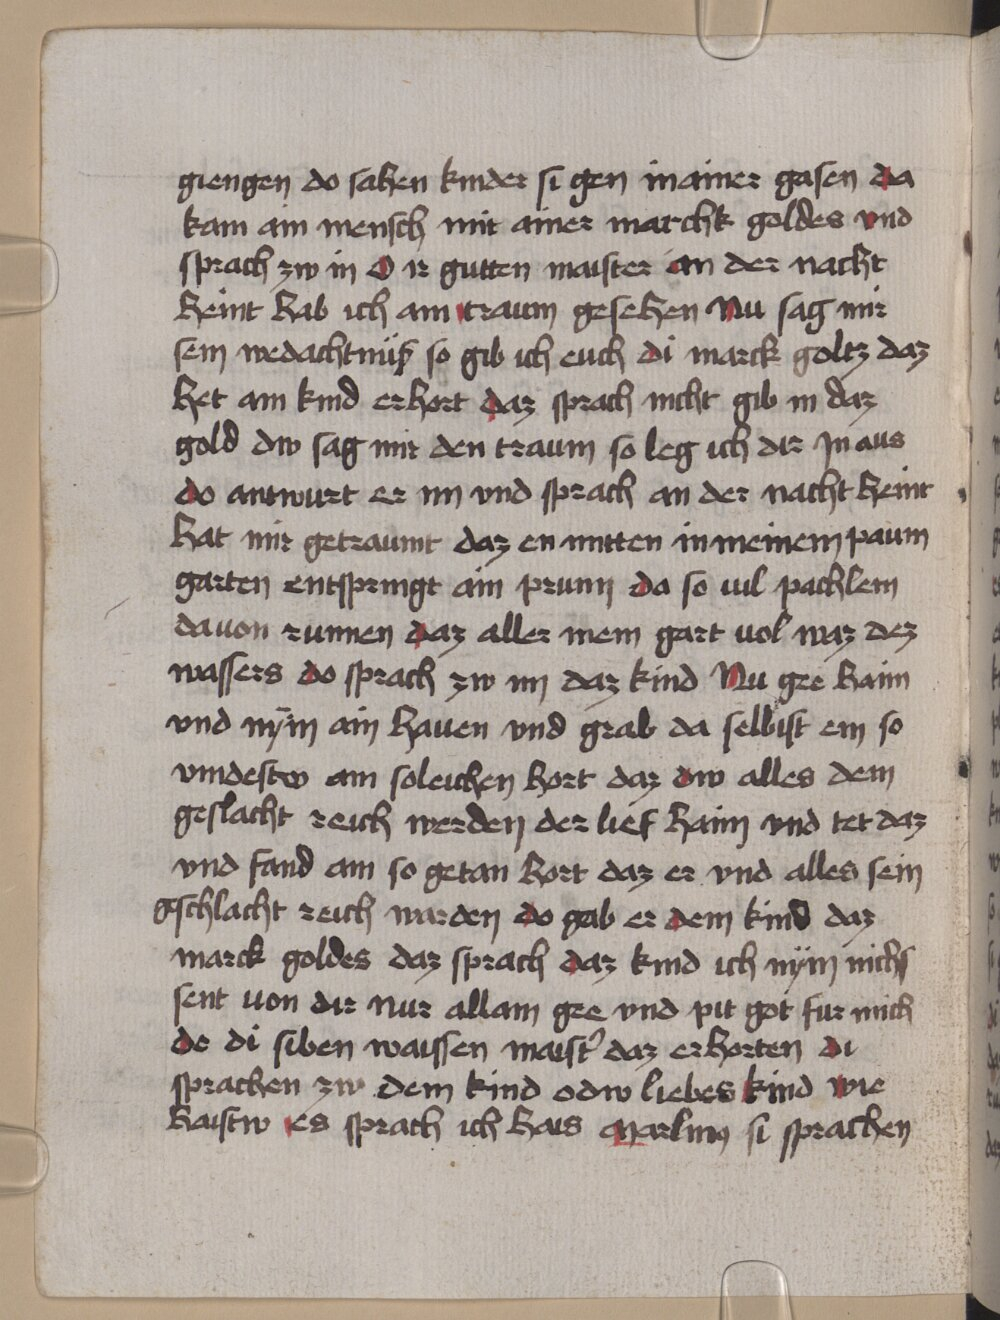 giengen do sahen kinder si gen in ainer gasen da
kam ain mensch mit ainer marchk goldes vnd
sprach zw in O ir gutten maister an der nacht
heint hab ich ain traum gesehen Nu sag mir
sein wedachtnüß so gib ich euch di marck goltz daz
het ain kind erhort daz sprach nicht gib in daz
gold dw sag mir den traum so leg ich dir In aus
do antwurt er im vnd sprach an der nacht heint
hat mir getraumt daz en mitten in meinem paum
garten entspringt ain prunn do so vil pachlein
davon runnen daz aller mein gart vol waz dez
wassers do sprach zw im daz kind Nu gee haim
vnd nÿm ain hauen vnd grab da selbist ein so
vindestw ain soleichen hort daz dw alles dein
geslacht reich werden der lief haim vnd tet daz
vnd fand ain so getan hort daz er vnd alles sein
gschlacht reich warden do gab er dem kind daz
marck goldes daz sprach daz kind ich nÿm nichs
sent von dir nur allain gee vnd pit got fur mich
de di siben waissen maist' daz erhorten di
sprachen zw dem kind odw liebes kind wie
haistw es sprach ich hais Marlinus si sprachen